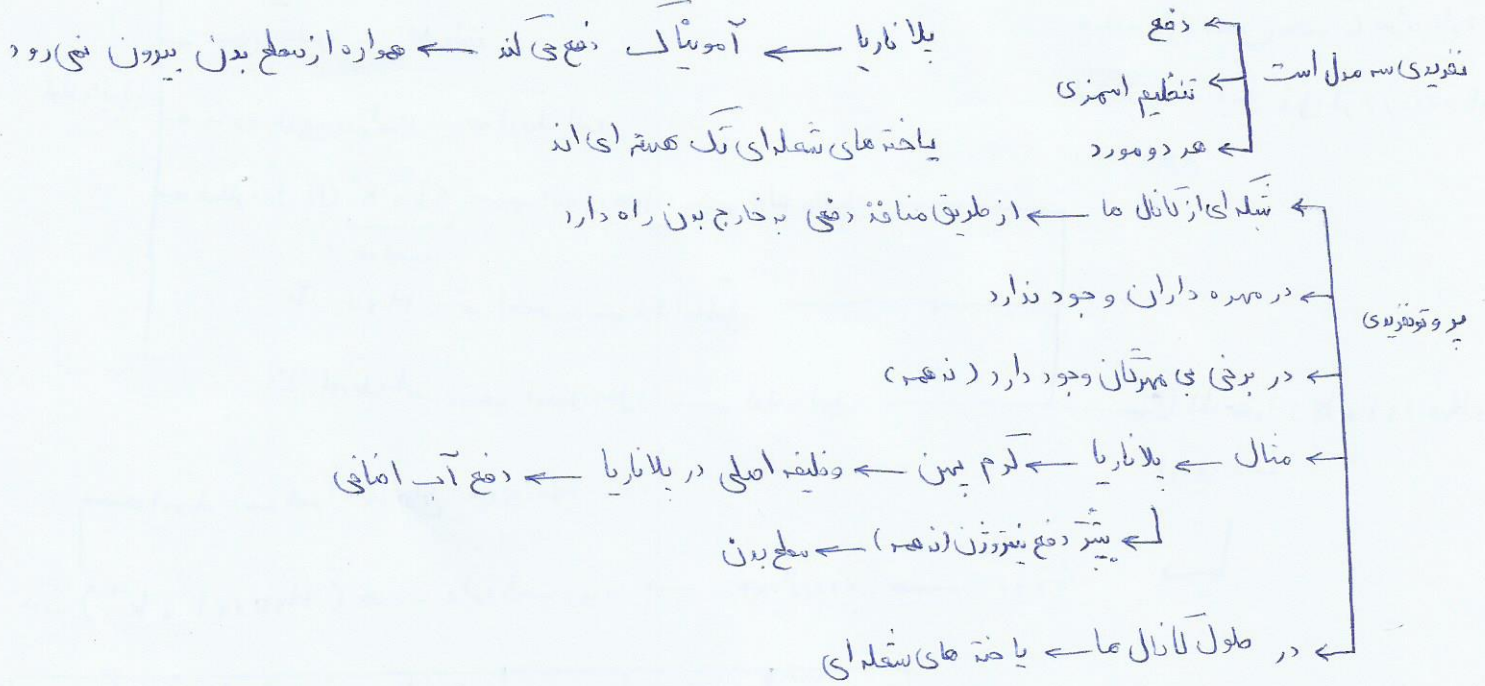 نفریدی سه مدل است
← دفع
← تنظیم اسمزی
← هر دو مورد
پلاناریا ← آمونیاک دفع می کند ← همواره از سطح بدن بیرون نمی رود
یاخته های شعله ای تک هسته ای اند
پروتونفریدی
← شبکه ای از کانال ها ← از طریق منافذ دفعی به خارج بدن راه دارد
← در مهره داران وجود ندارد
← در برخی بی مهرگان وجود دارد (نه همه)
← مثال ← پلاناریا ← کرم پهن ← وظیفه اصلی در پلاناریا ← دفع آب اضافی
← بیشتر دفع نیتروژن (نه همه) ← سطح بدن
← در طول کانال ها ← یاخته های شعله ای